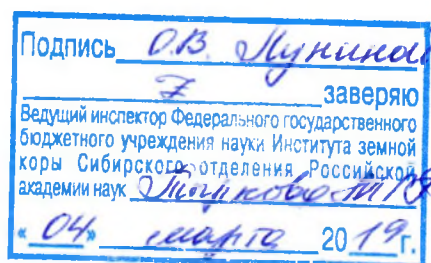 Подпись О.В. Лунина
заверяю
Ведущий инспектор Федерального государственного
бюджетного учреждения науки Института земной
коры Сибирского отделения Российской
академии наук
«04» марта 2019г.